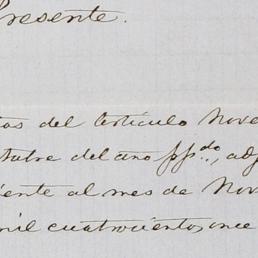 Presente.
tos del artículo Nove
ctubre del año ppdo., adj
iente al mes de Nov
mil cuatrocientos once